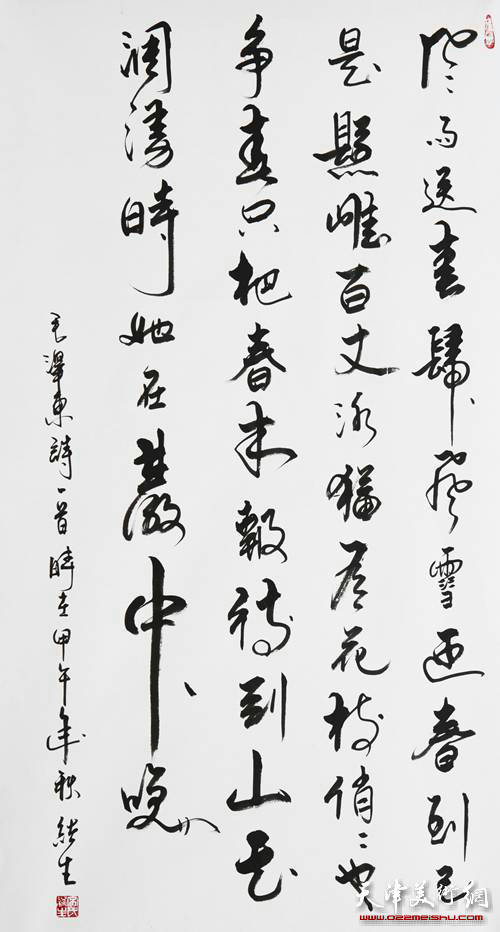 风雨送春歸飛雪迎春到已
是懸崖百丈冰猶有花枝俏俏也不
争春只把春来報待到山花
爛漫時她在叢中咲
毛澤東詩一首時在甲午年秋
天津美術網
www.022meishu.com